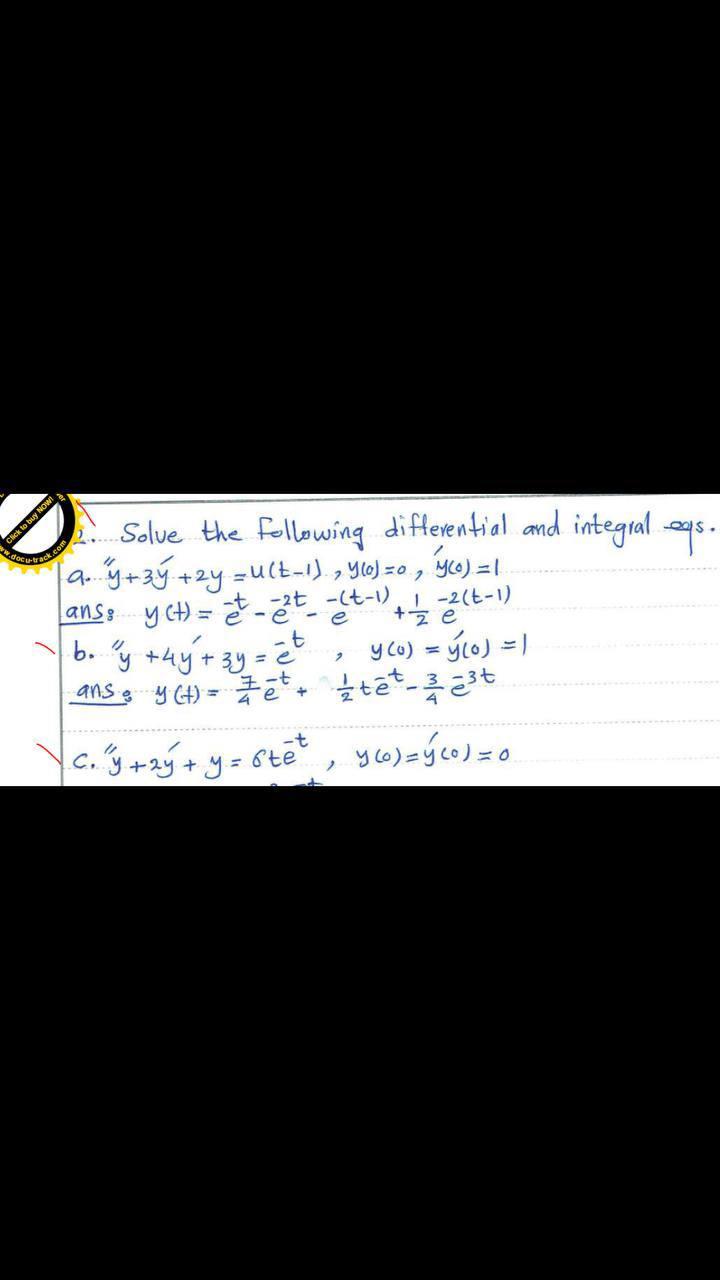 Click to buy NOW!
www.docu-track.com
2. Solve the following differential and integral eqs.
a. y″ + 3y′ + 2y = u(t-1) , y(0)=0 , y′(0)=1
ans: y(t) = e^-t - e^-2t - e^-(t-1) + 1/2 e^-2(t-1)
b. y″ + 4y′ + 3y = e^-t , y(0) = y′(0) = 1
ans: y(t) = 7/4 e^-t + 1/2 t e^-t - 3/4 e^-3t
c. y″ + 2y′ + y = 6te^-t , y(0)=y′(0)=0